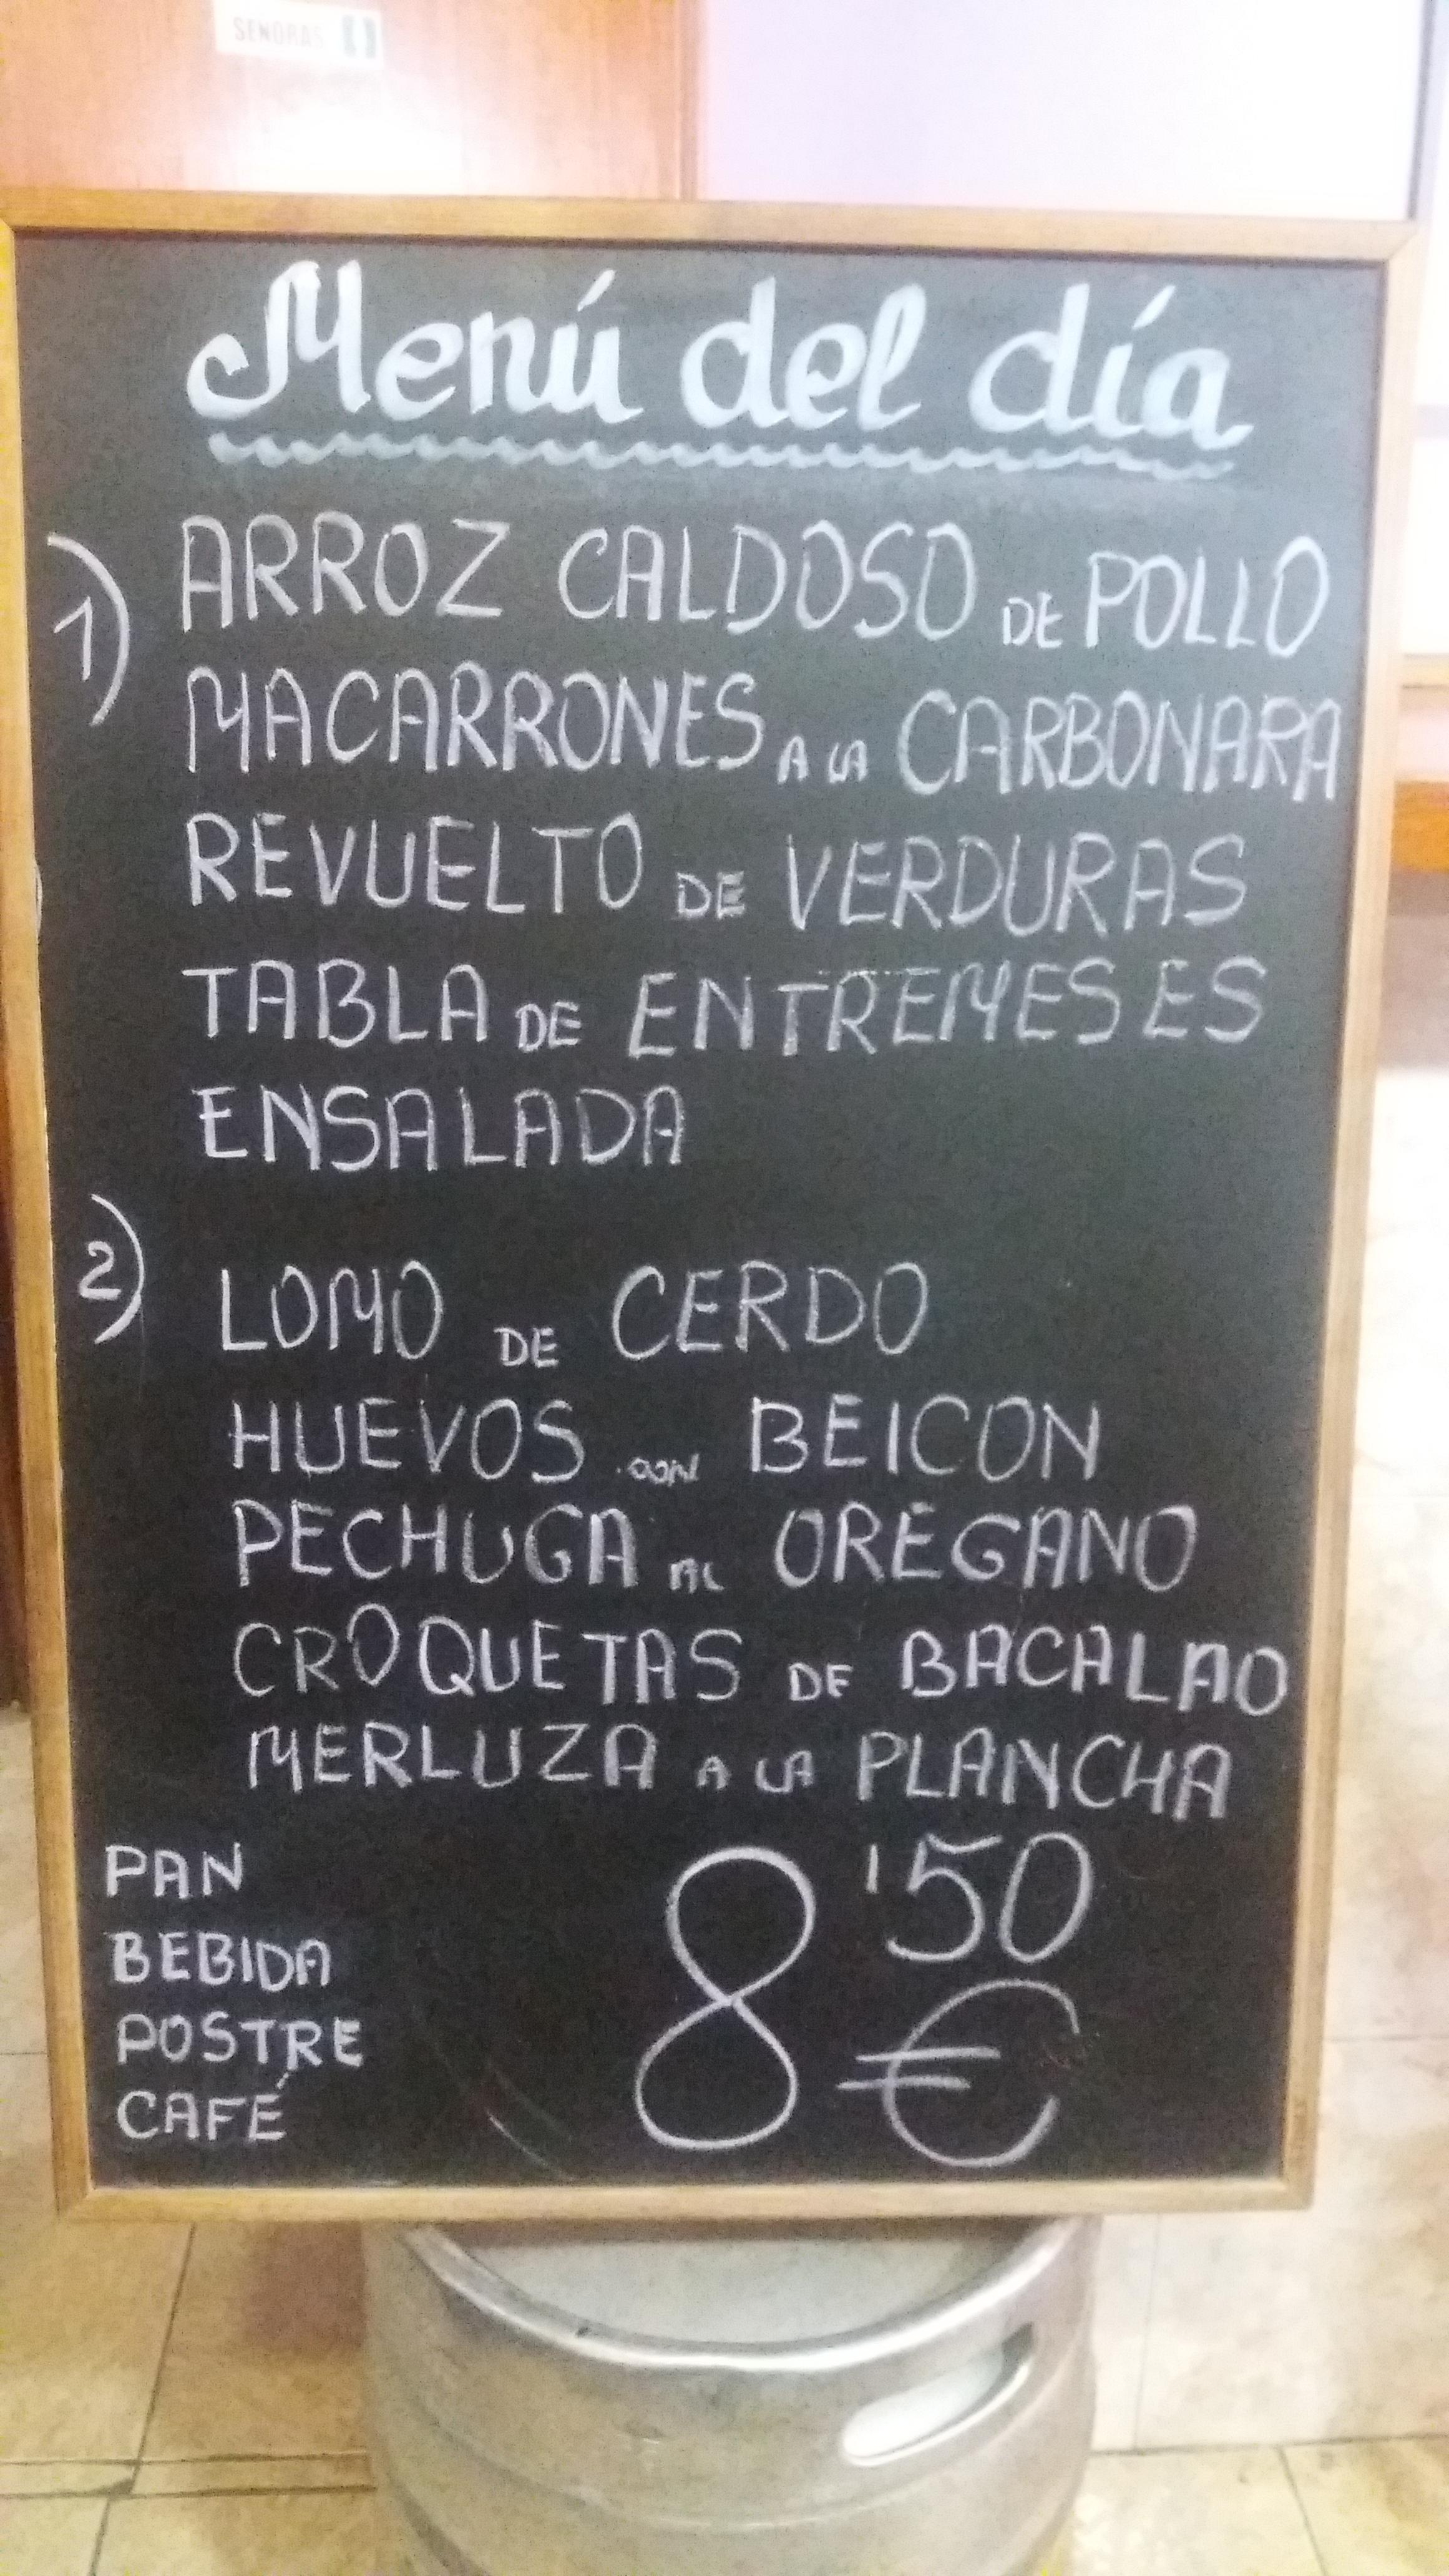 SEÑORAS
Menú del día
1) ARROZ CALDOSO DE POLLO
MACARRONES A LA CARBONARA
REVUELTO DE VERDURAS
TABLA DE ENTREMESES
ENSALADA
2) LOMO DE CERDO
HUEVOS CON BEICON
PECHUGA AL ORÉGANO
CROQUETAS DE BACALAO
MERLUZA A LA PLANCHA
PAN
BEBIDA
POSTRE
CAFÉ
8'50 €